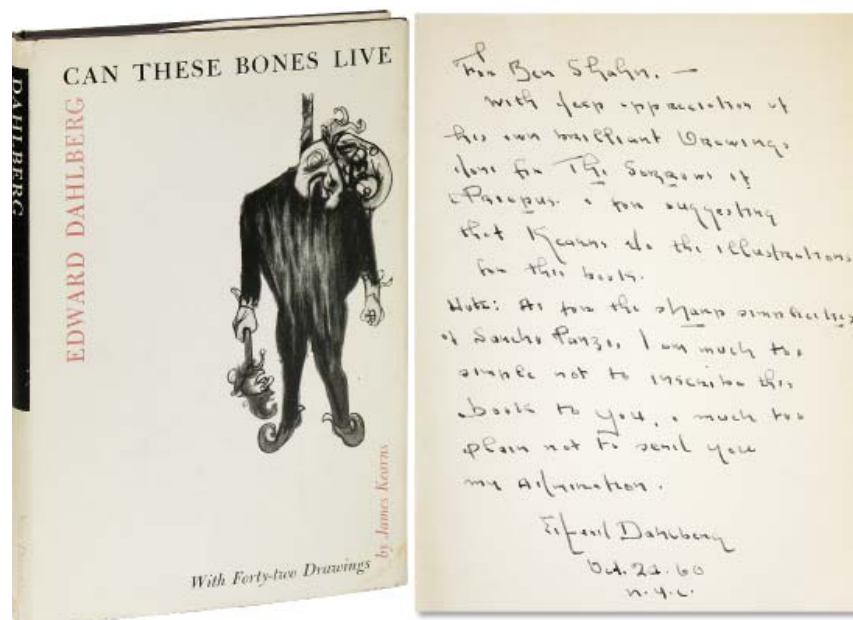 DAHLBERG
CAN THESE BONES LIVE
EDWARD DAHLBERG
With Forty-two Drawings
by James Kearns
For Ben Shahn. —
With deep appreciation of
his own brilliant Drawings
done for The Sorrows of
Priapus & for suggesting
that Kearns do the illustrations
for this book.
Note: As for the sharp simplicities
of Sancho Panza, I am much too
simple not to inscribe this
book to you, & much too
plain not to send you
my Admiration.
Edward Dahlberg
Oct. 22. 60
N.Y.C.